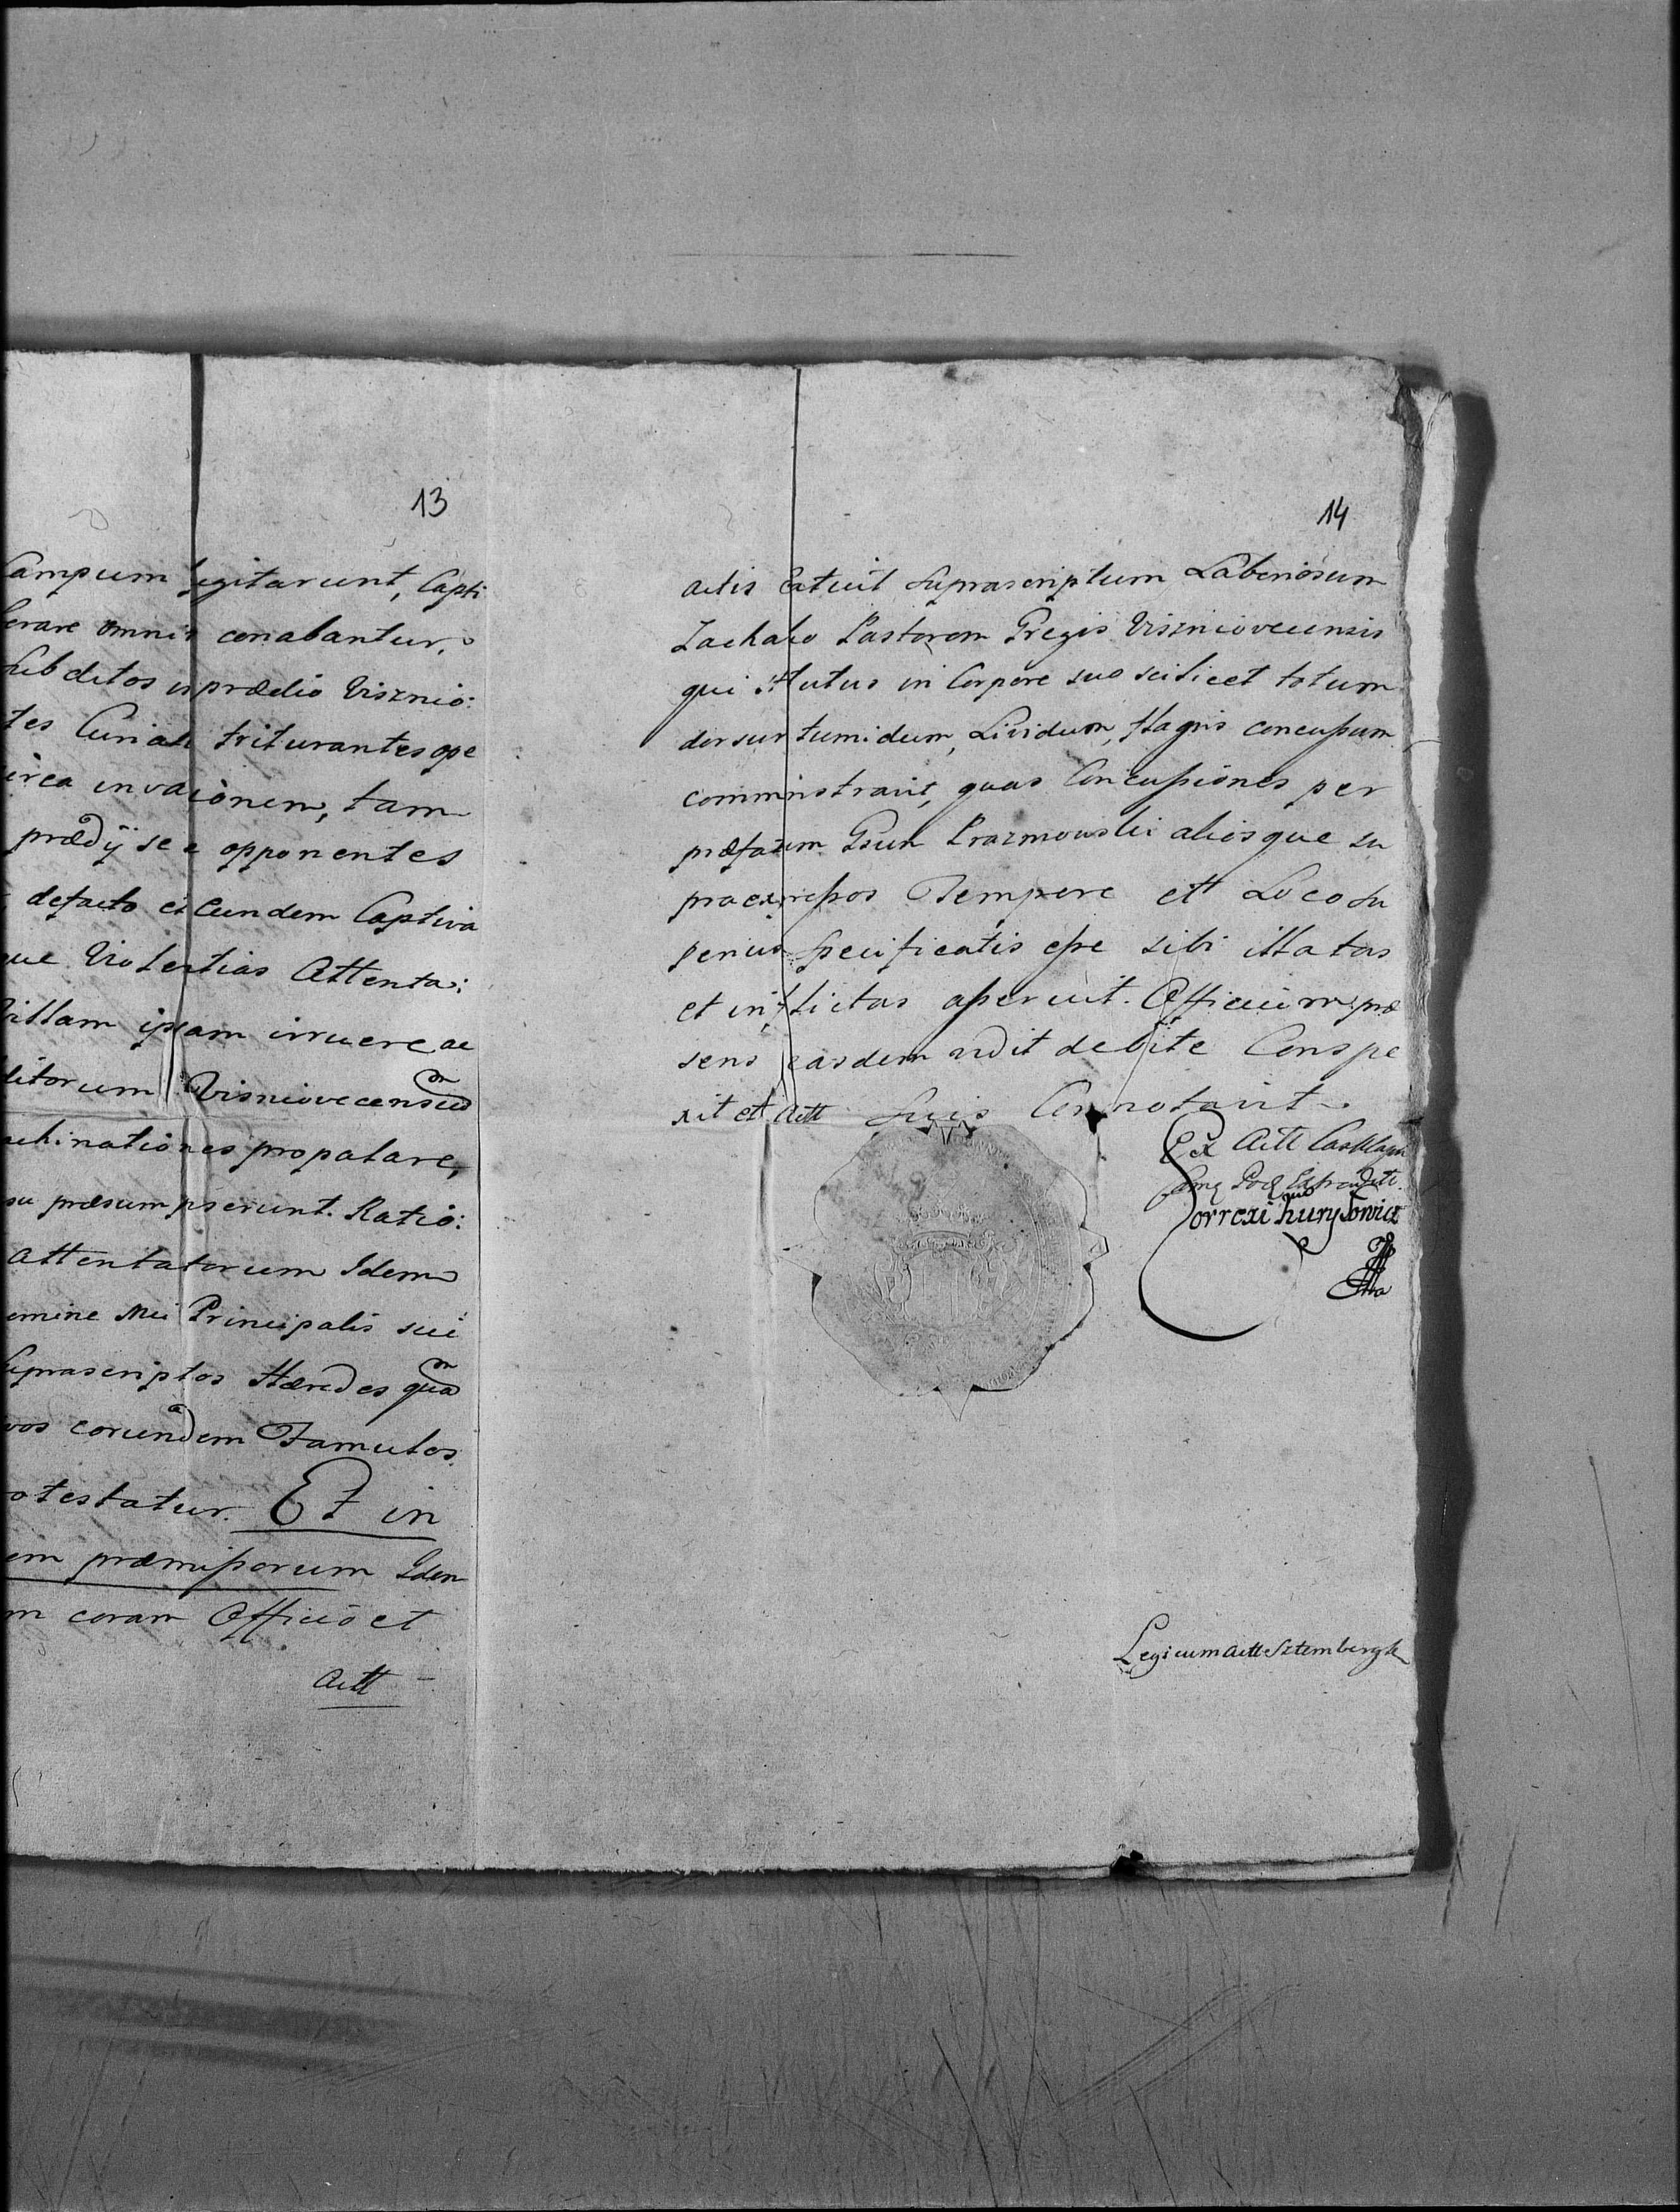 13
Campum legitarunt, Capti
berare omnis conabantur,
Subditos in prædio Visznio:
tes Curiali triturantes ope
circa invasionem, tam
prædij se e opponentes
defacto et Eundem Captiva
que Violentias Attenta:
Villam ipsam irruere ac
ditorum Visniovecensium
achinationes propalare,
su præsumpserunt. Ratio:
attentatorum Idem
omine Mei Principalis sui
Suprascriptos Hæredes quam
vos eorundem Famulos
otestatur. Et in
em præmissorum Idem
m coram Officio et
Actt
14
actis statuit suprascriptum Laboriosum
Zachalo Pastorem Gregis Viszniovecensis
qui statutus in Corpore suo scilicet totum
dorsum tumidum, Lividum, plagis concussum
comminstravit, quas Concussiones per
præfatum Gsum Prazmowski aliosque su
praexpressos Tempore et Loco su
perius specificatis esse sibi illatas
et inflictas asseruit. Officium præ
sens easdem vidit debite Conspe
xit et Actt suis Connotavit.
Ex Actt Castr
Correxi Hurysowicz
Legi cum Actt Sztembergk